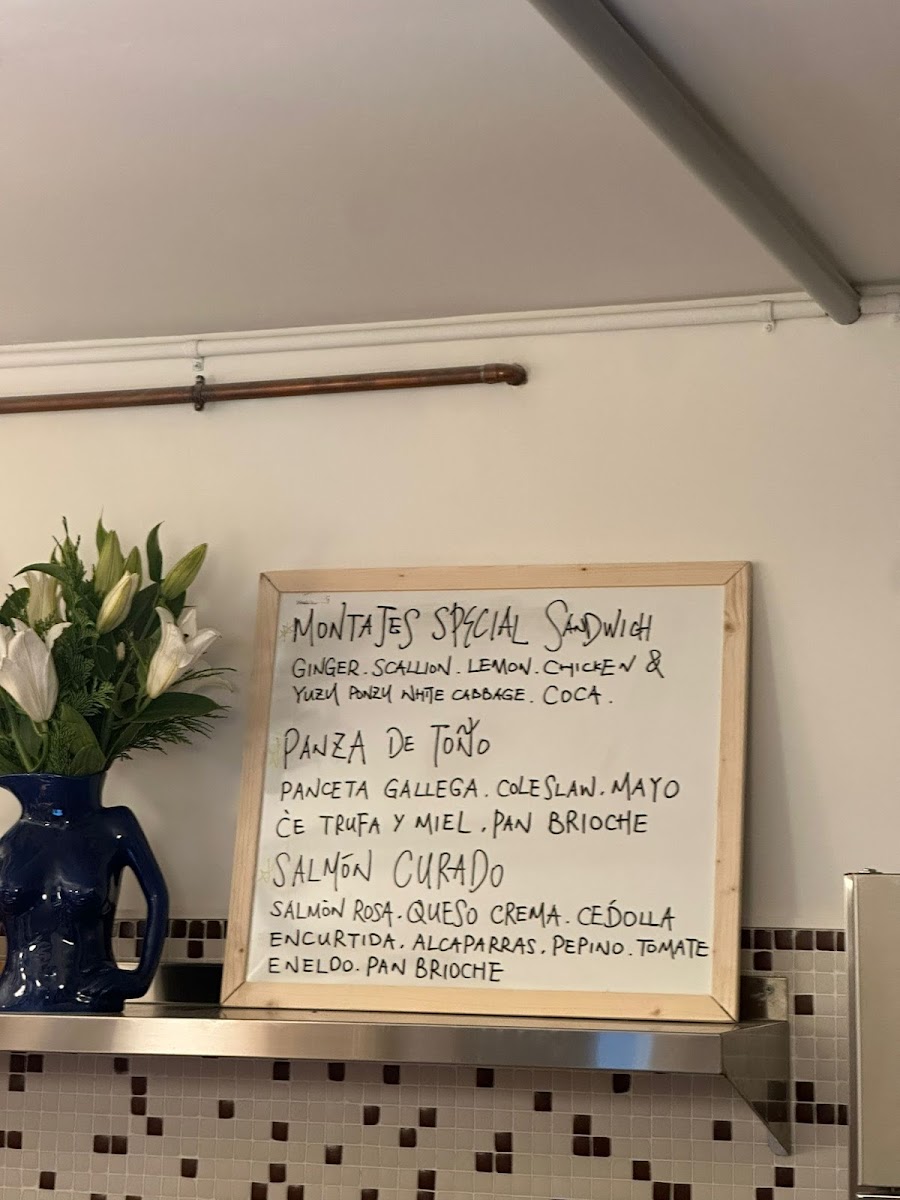 MONTAJES SPECIAL SANDWICH
GINGER. SCALLION. LEMON. CHICKEN &
YUZU PONZU WHITE CABBAGE. COCA.
PANZA DE TOÑO
PANCETA GALLEGA. COLESLAW. MAYO
ĊE TRUFA Y MIEL. PAN BRIOCHE
SALMÓN CURADO
SALMÒN ROSA. QUESO CREMA. CEḂOLLA
ENCURTIDA. ALCAPARRAS. PEPINO. TOMATE
ENELDO. PAN BRIOCHE